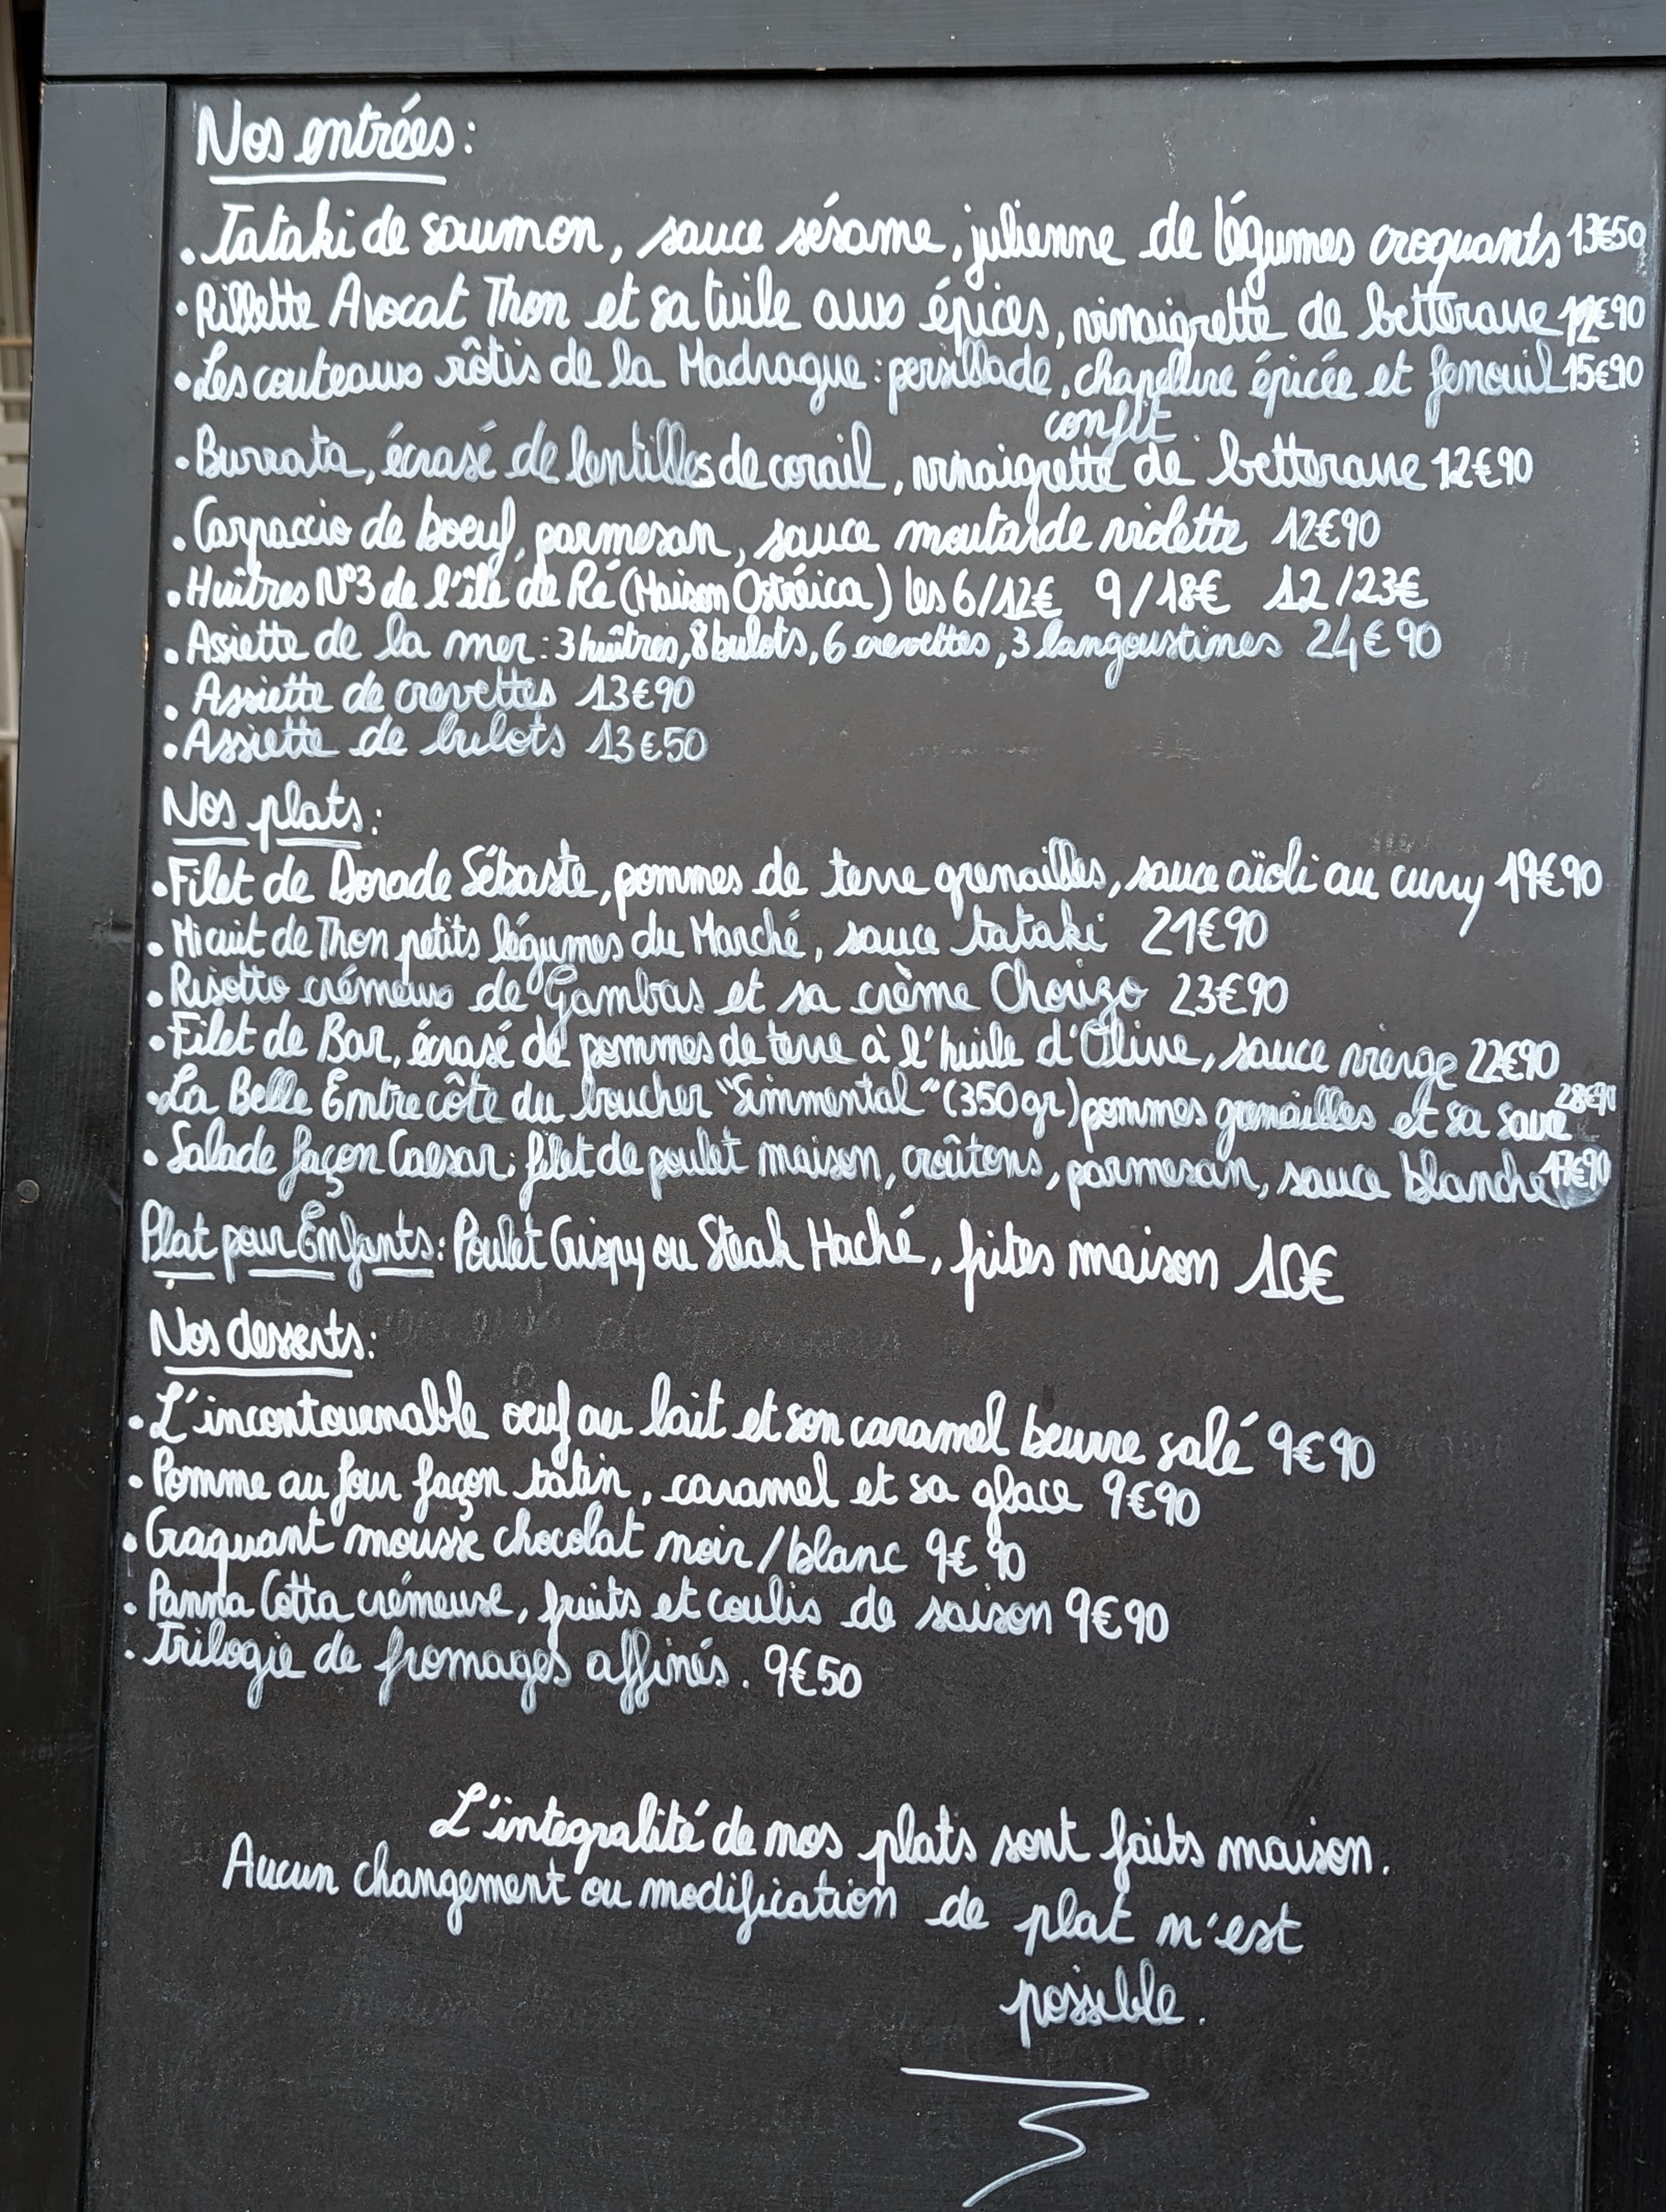 Nos entrées:
. Tataki de saumon, sauce sésame, julienne de légumes croquants 13€50
. Rillette Avocat Thon et sa tuile aux épices, vinaigrette de betterave 12€90
. Les couteaux rôtis de la Madrague: persillade, chapelure épicée et fenouil 15€90
confit
. Burrata, écrasé de lentilles de corail, vinaigrette de betterave 12€90
. Carpaccio de boeuf, parmesan, sauce moutarde violette 12€90
. Huîtres N°3 de l'île de Ré (Maison Ostréica) les 6/12€ 9/18€ 12/23€
. Assiette de la mer: 3 huîtres, 8 bulots, 6 crevettes, 3 langoustines 24€90
. Assiette de crevettes 13€90
. Assiette de bulots 13€50
Nos plats:
. Filet de Dorade Sébaste, pommes de terre grenailles, sauce aïoli au curry 19€90
. Micuit de Thon petits légumes du Marché, sauce tataki 21€90
. Risotto crémeux de Gambas et sa crème Chorizo 23€90
. Filet de Bar, écrasé de pommes de terre à l'huile d'Olive, sauce vierge 22€90
. La Belle Entrecôte du boucher "Simmental" (350gr) pommes grenailles et sa sauce 28€90
. Salade façon Caesar; filet de poulet maison, croûtons, parmesan, sauce blanche 17€90
Plat pour Enfants: Poulet Crispy ou Steak Haché, frites maison 10€
Nos desserts:
. L'incontournable oeuf au lait et son caramel beurre salé 9€90
. Pomme au four façon tatin, caramel et sa glace 9€90
. Craquant mousse chocolat noir/blanc 9€90
. Panna Cotta crémeuse, fruits et coulis de saison 9€90
. Trilogie de fromages affinés. 9€50
L'integralité de nos plats sont faits maison.
Aucun changement ou modification de plat n'est
possible.